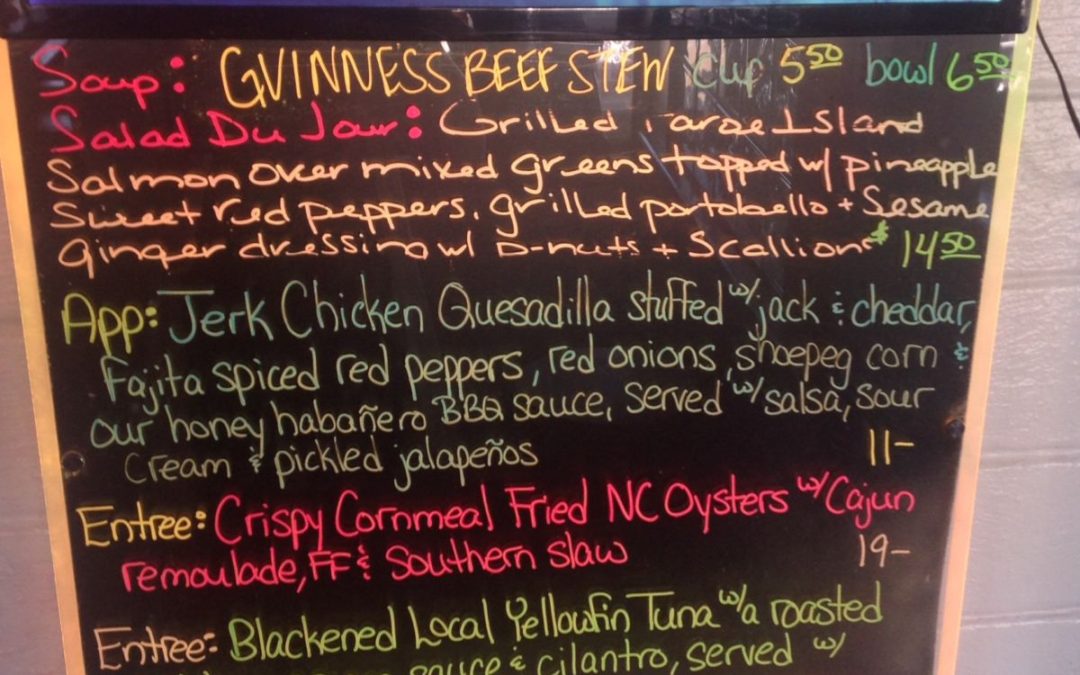 Soup: GUINNESS BEEF STEW cup 5⁵⁰ bowl 6⁵⁰
Salad Du Jour: Grilled Faroe Island
Salmon over mixed greens topped w/ pineapple
Sweet red peppers, grilled portobello + Sesame
ginger dressing w/ P-nuts + Scallions $14⁵⁰
App: Jerk Chicken Quesadilla stuffed w/ jack & cheddar,
Fajita spiced red peppers, red onions, shoepeg corn &
our honey habañero BBQ sauce, served w/ salsa, sour
Cream & pickled jalapeños 11-
Entree: Crispy Cornmeal Fried NC Oysters w/ Cajun
remoulade, FF & Southern Slaw 19-
Entree: Blackened Local Yellowfin Tuna w/ a roasted
sauce & cilantro, served w/